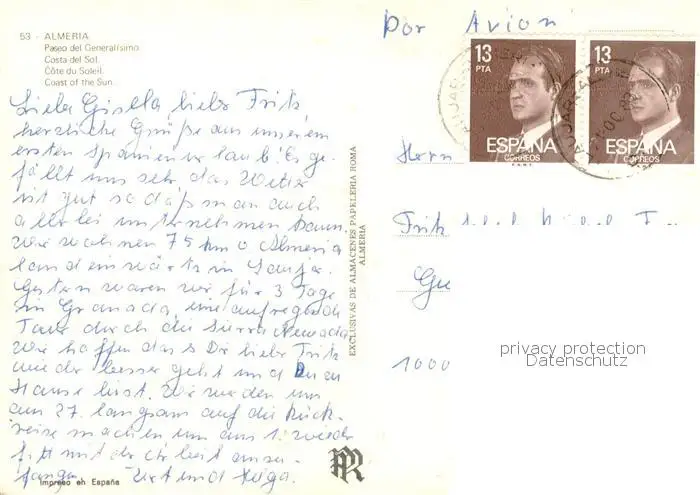 53 - ALMERIA
Paseo del Generalísimo
Costa del Sol.
Côte du Soleil.
Coast of the Sun.
Liebe Gisela lieber Fritz
herzliche Grüße aus unserem
ersten Spanienurlaub! Es ge-
fällt uns sehr, das Wetter
ist gut so daß man auch
allerlei unternehmen kann.
Wir wohnen 75 km v Almeria
landeinwärts in Laujar.
Gestern waren wir für 3 Tage
in Granada, eine aufregende
Tour durch die Sierra Nevada
Wir hoffen das s Dir lieber Fritz
wieder besser geht und Du zu
Hause bist. Wir werden uns
am 27. langsam auf die Rück-
reise machen um am 1. wieder
fitt mit der Arbeit anzu-
fangen. und Helga.
Impreso en España
EXCLUSIVAS DE ALMACENES PAPELERIA ROMA
ALMERIA
Por Avion
13
PTA
ESPAÑA
CORREOS
13
PTA
ESPAÑA
CORREOS
Herrn
Fritz
Gu
1000
privacy protection
Datenschutz